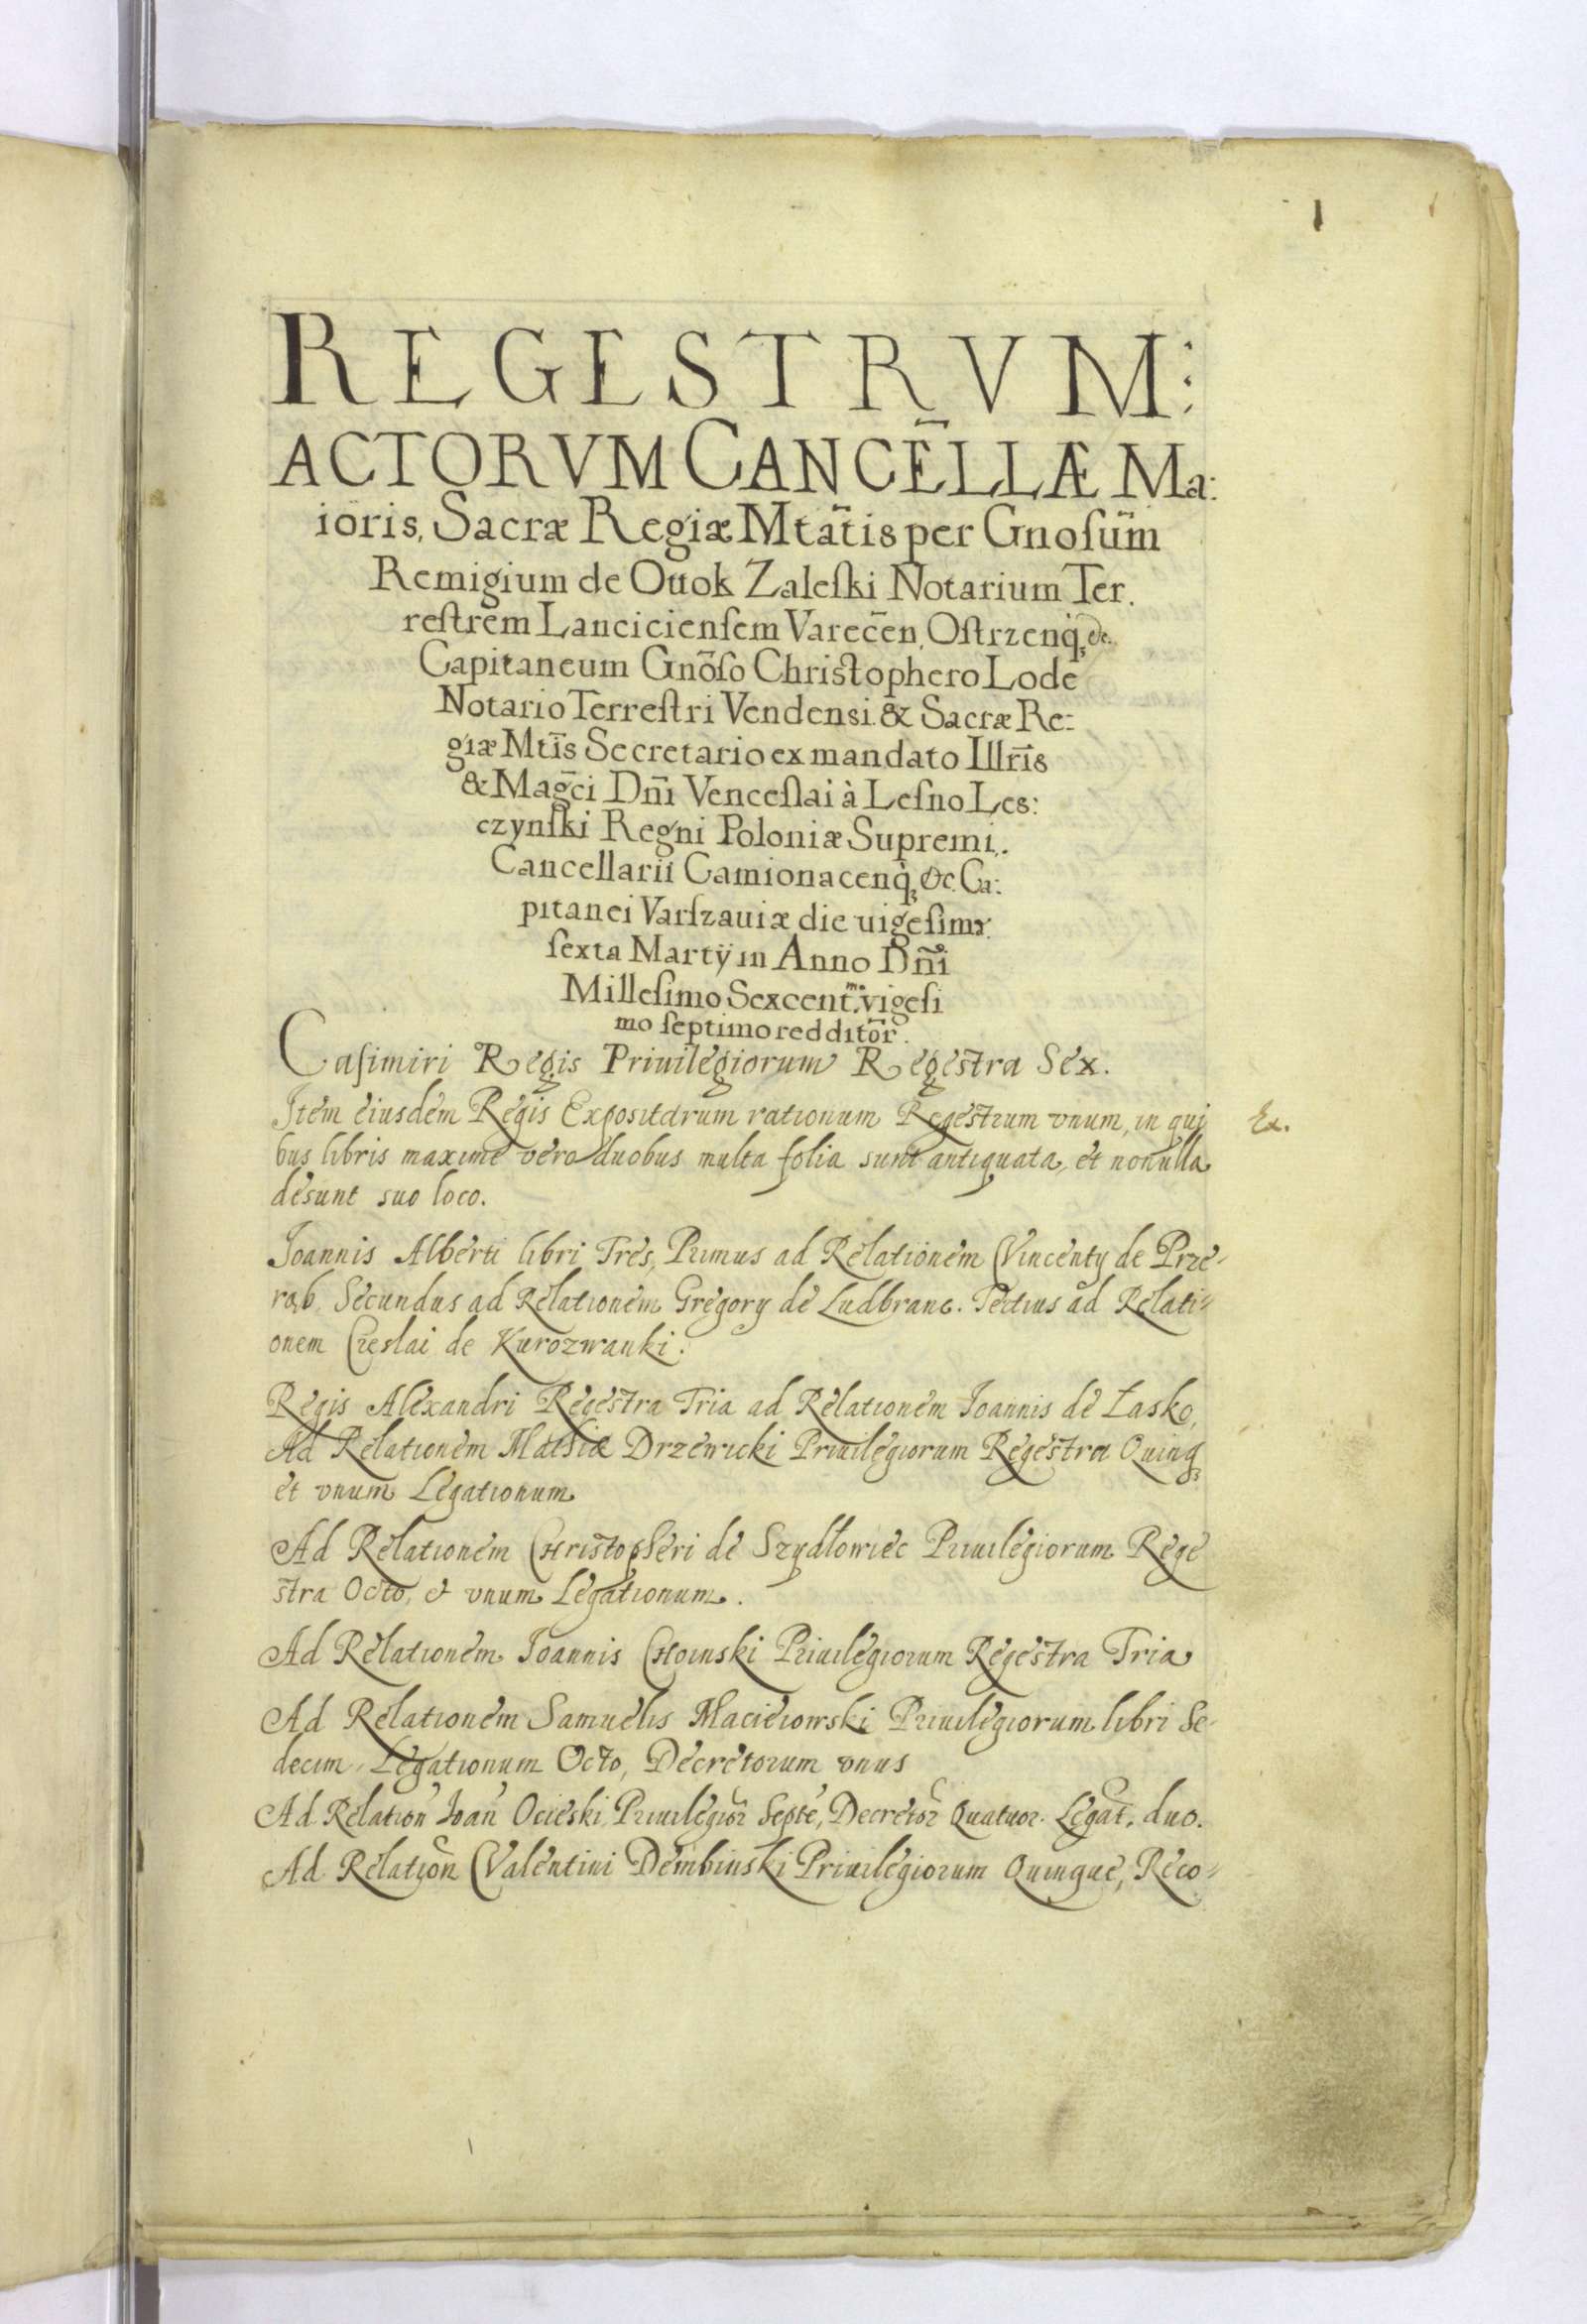 1
REGESTRVM:
ACTORVM CANCE̅LLÆ Ma:
ioris, Sacræ Regiæ Mta̅tis per Gnoſum̅
Remigium de Ottok Zaleſki Notarium Ter.
reſtrem Lancicienſem Varecẽn, Oſtrzenq̨, &c.
Capitaneum Gnõſo Christophero Lode
Notario Terreſtri Vendensi & Sacræ Re:
giæ Mtı̅s Secretario ex mandato Illrı̅s
& Magc̅i Dn̅i Venceſlai à Leſno Les:
czynſki Regni Poloniæ Supremi,
Cancellarii Camionacenq̨, &c. Ca:
pitanei Varſzaviæ die uigeſima
ſexta Martÿ in Anno Dn̅i
Milleſimo Sexcentmo. vigeſi
mo ſeptimo redditõr.
Caſimiri Regis Priuilegiorum Regestra Sex.
Item eiusdem Regis Expositarum rationum Regestrum vnum, in qui
bus libris maxime vero duobus multa folia sunt antiquata, et nonulla
desunt suo loco.
Ex.
Joannis Alberti libri Tres, Primus ad Relationem Vincenty de Prze-
rąb, Secundus ad Relationem Gregory de Ludbranc. Tertius ad Relati-
onem Creslai de Kurozwanki.
Regis Alexandri Regestra Tria ad Relationem Joannis de Łasko,
Ad Relationem Mathiæ Drzewicki Priuilegiorum Regestra Quinq̨
et vnum Legationum
Ad Relationem Christopheri de Szydłowiec Priuilegiorum Rege
stra Octo, & vnum Legationum.
Ad Relationem Joannis Choinski Priuilegiorum Regestra Tria
Ad Relationem Samuelis Macieiowski Priuilegiorum libri Se-
decim, Legationum Octo, Decretorum vnus
Ad Relation̅ Joan̅ Ocieski, Priuilegior̃ Septe̅, Decretor̃ Quatuor. Legat̃. duo.
Ad Relatio̅n Valentini Dembinski Priuilegiorum Quinque, Reco-